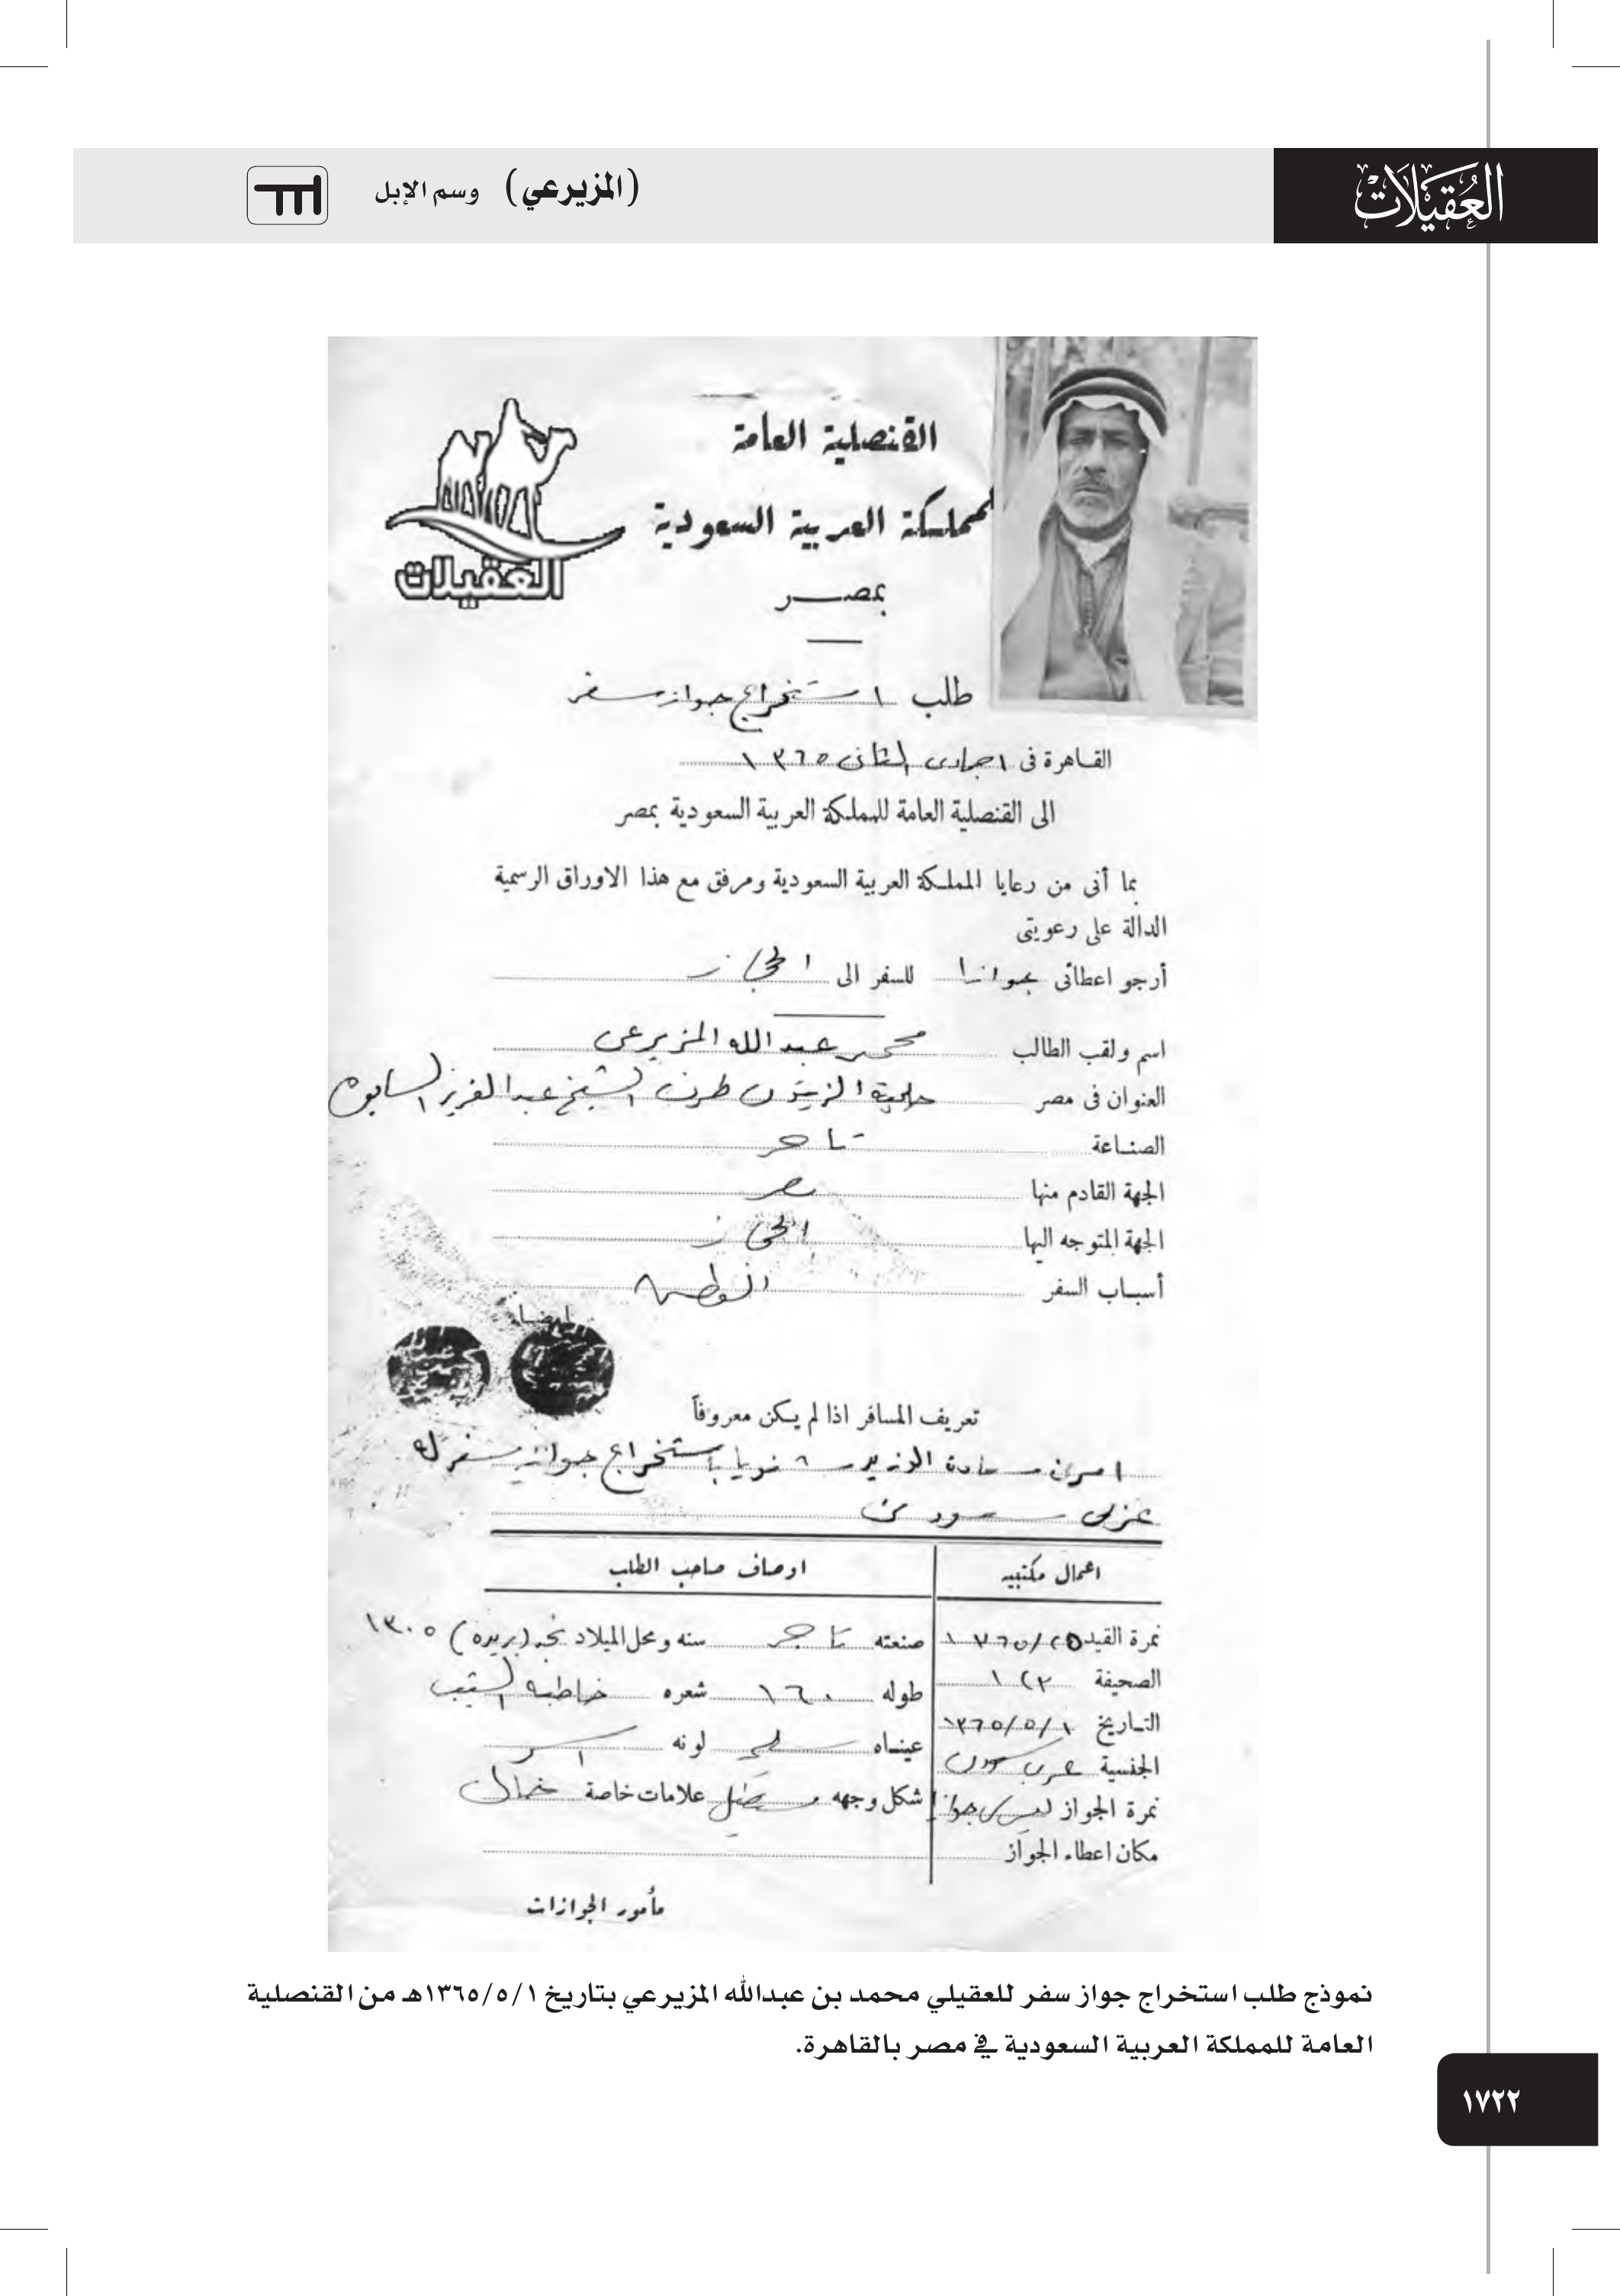 العُقَيْلَات
(المزيرعي) وسم الإبل
القنصلية العامة
للمملكة العربية السعودية
بمصر
العقيلات
طلب استخراج جواز سفر
القاهرة فى ١ جمادى الثانى ١٣٦٥
الى القنصلية العامة للمملكة العربية السعودية بمصر
بما أنى من رعايا المملكة العربية السعودية ومرفق مع هذا الاوراق الرسمية
الدالة على رعويتى
أرجو اعطائى جوازا للسفر الى الحجاز
اسم ولقب الطالب محمد عبد الله المزيرعى
العنوان فى مصر حلمية الزيتون طرف الشيخ عبد العزيز
الصناعة تاجر
الجهة القادم منها مصر
الجهة المتوجه اليها الحجاز
أسباب السفر
امضا
تعريف المسافر اذا لم يكن معروفاً
سعادة الوزير شفويا باستخراج جواز سفر له
سعودى
اعمال مكتبيه
اوصاف صاحب الطلب
نمرة القيد ١٣٦٥/٢٥ صنعته تاجر سنه ومحل الميلاد نجد (بريده) ١٣٠٥
الصحيفة ١٢٣ طوله ١٦٠ شعره الشيب
التاريخ ١٣٦٥/٥/١ عيناه لونه اسمر
الجنسية عربى سعودى شكل وجهه مستطيل علامات خاصة
نمرة الجواز جواز
مكان اعطاء الجواز
مأمور الجوازات
نموذج طلب استخراج جواز سفر للعقيلي محمد بن عبدالله المزيرعي بتاريخ ١٣٦٥/٥/١هـ من القنصلية
العامة للمملكة العربية السعودية في مصر بالقاهرة.
١٧٢٢